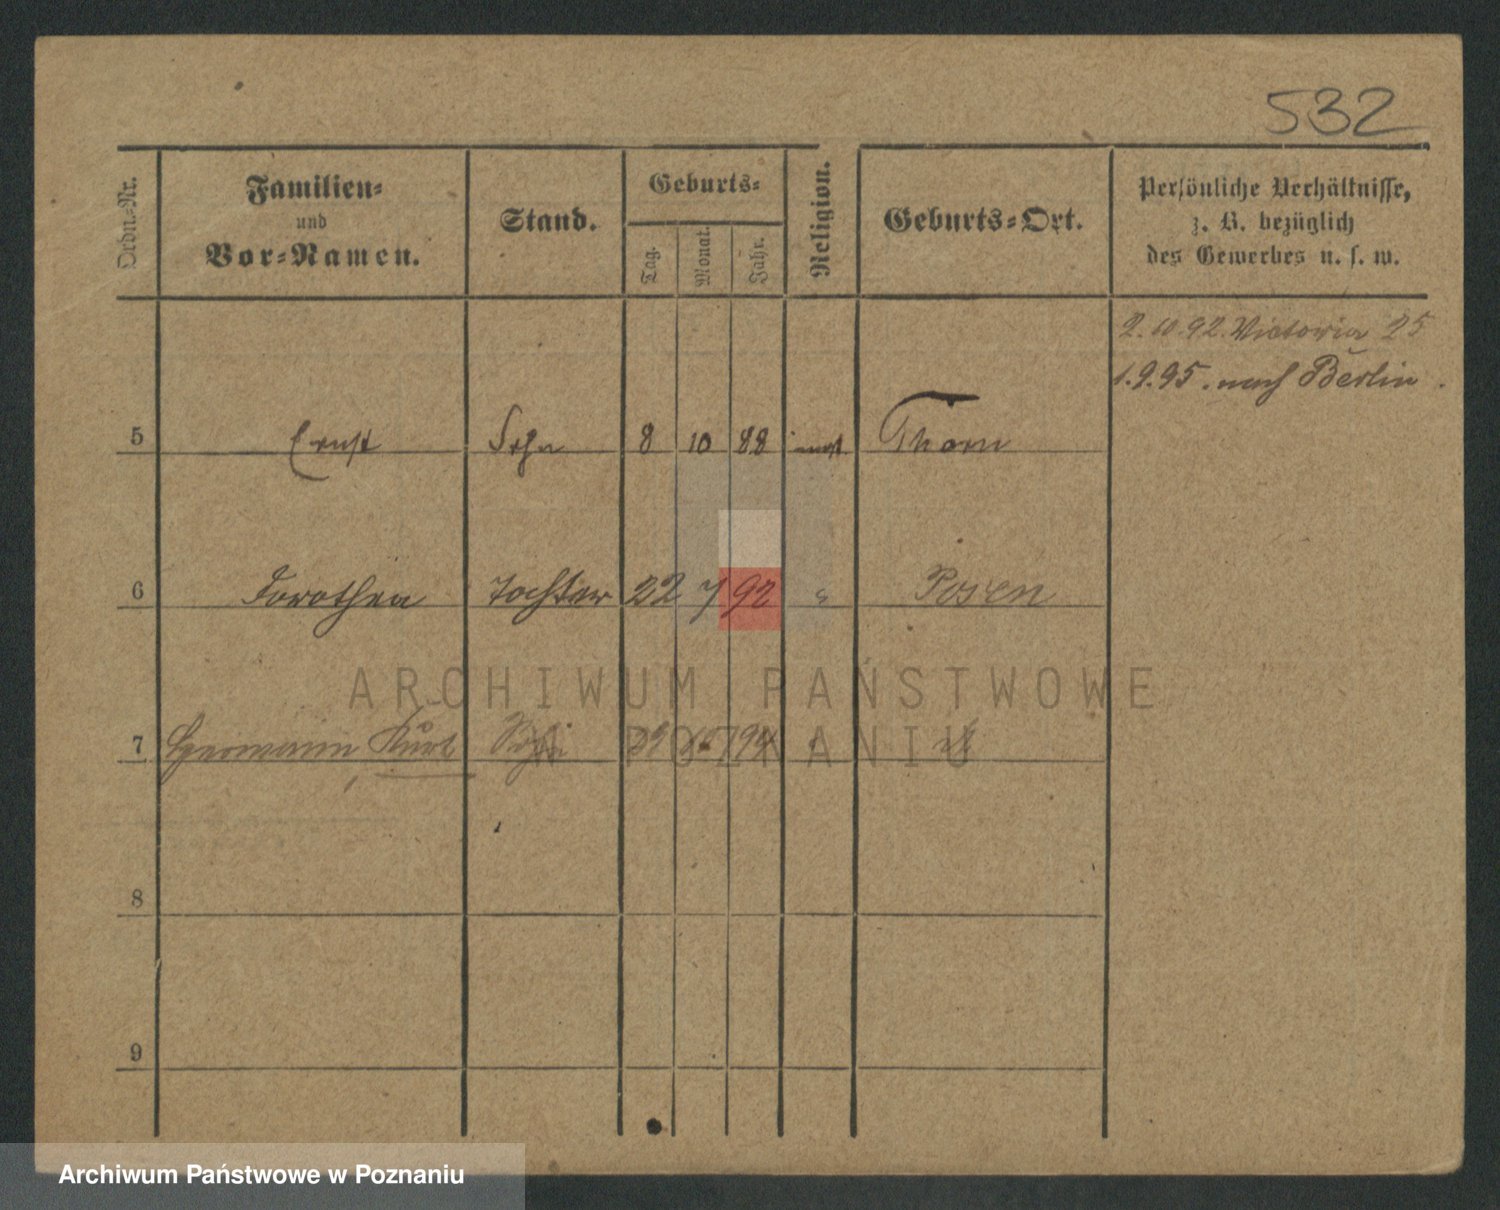 532
Ordn-Nr.
Familien-
und
Vor-Namen.
Stand.
Geburts-
Tag.
Monat.
Jahr.
Religion.
Geburts-Ort.
Persönliche Verhältnisse,
z. B. bezüglich
des Gewerbes u. s. w.
2.10.92. Victoria 25
1.9.95. nach Berlin.
5 Ernst Sohn 8 10 88 mos Thorn
6 Dorothea Tochter 22 7 92 " Posen
7 Hermann Kurt Sohn 94
8
9
ARCHIWUM PAŃSTWOWE
W POZNANIU
Archiwum Państwowe w Poznaniu